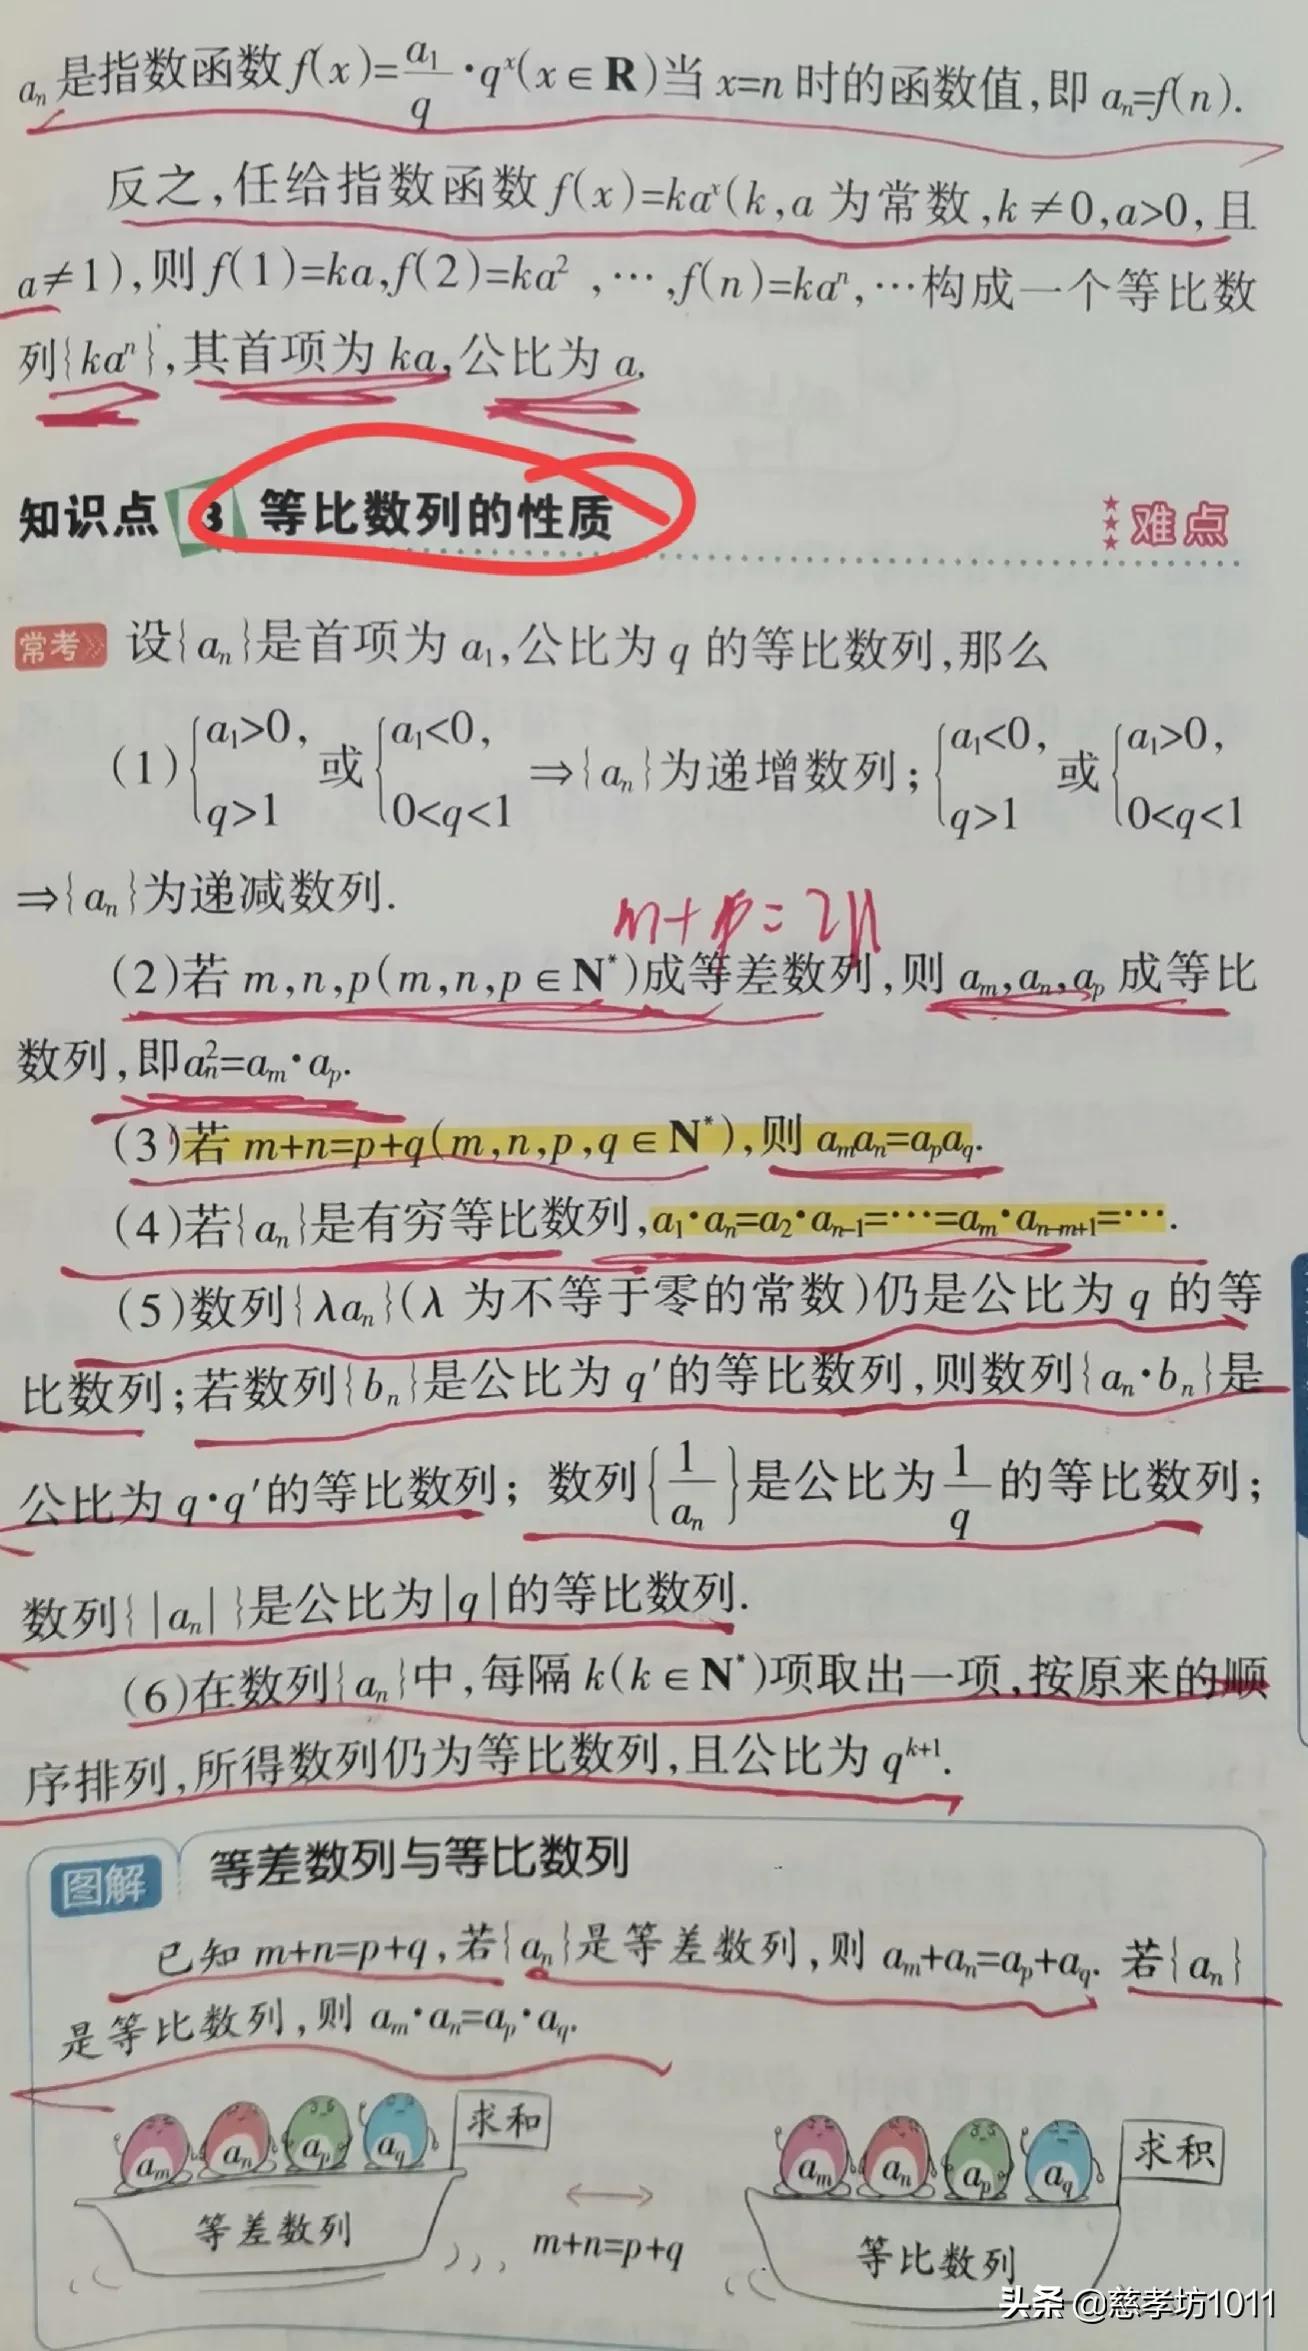 aₙ是指数函数 f(x)=a₁/q·qˣ(x∈R)当 x=n 时的函数值,即 aₙ=f(n).
反之,任给指数函数 f(x)=kaˣ(k,a 为常数,k≠0,a>0,且
a≠1),则 f(1)=ka,f(2)=ka²,…,f(n)=kaⁿ,…构成一个等比数
列{kaⁿ},其首项为 ka,公比为 a.
知识点 3 等比数列的性质
难点
常考 设{aₙ}是首项为 a₁,公比为 q 的等比数列,那么
(1){a₁>0, q>1 或 {a₁<0, 0<q<1 ⇒{aₙ}为递增数列;{a₁<0, q>1 或 {a₁>0, 0<q<1
⇒{aₙ}为递减数列.
m+p=2n
(2)若 m,n,p(m,n,p∈N*)成等差数列,则 aₘ,aₙ,aₚ 成等比
数列,即aₙ²=aₘ·aₚ.
(3)若 m+n=p+q(m,n,p,q∈N*),则 aₘaₙ=aₚa_q.
(4)若{aₙ}是有穷等比数列,a₁·aₙ=a₂·aₙ₋₁=…=aₘ·aₙ₋ₘ₊₁=….
(5)数列{λaₙ}(λ 为不等于零的常数)仍是公比为 q 的等
比数列;若数列{bₙ}是公比为 q′的等比数列,则数列{aₙ·bₙ}是
公比为 q·q′的等比数列;数列{1/aₙ}是公比为1/q的等比数列;
数列{|aₙ|}是公比为|q|的等比数列.
(6)在数列{aₙ}中,每隔 k(k∈N*)项取出一项,按原来的顺
序排列,所得数列仍为等比数列,且公比为 qᵏ⁺¹.
图解 等差数列与等比数列
已知 m+n=p+q,若{aₙ}是等差数列,则 aₘ+aₙ=aₚ+a_q. 若{aₙ}
是等比数列,则 aₘ·aₙ=aₚ·a_q.
aₘ aₙ aₚ a_q 求和
等差数列
m+n=p+q
aₘ aₙ aₚ a_q 求积
等比数列
头条 @慈孝坊1011